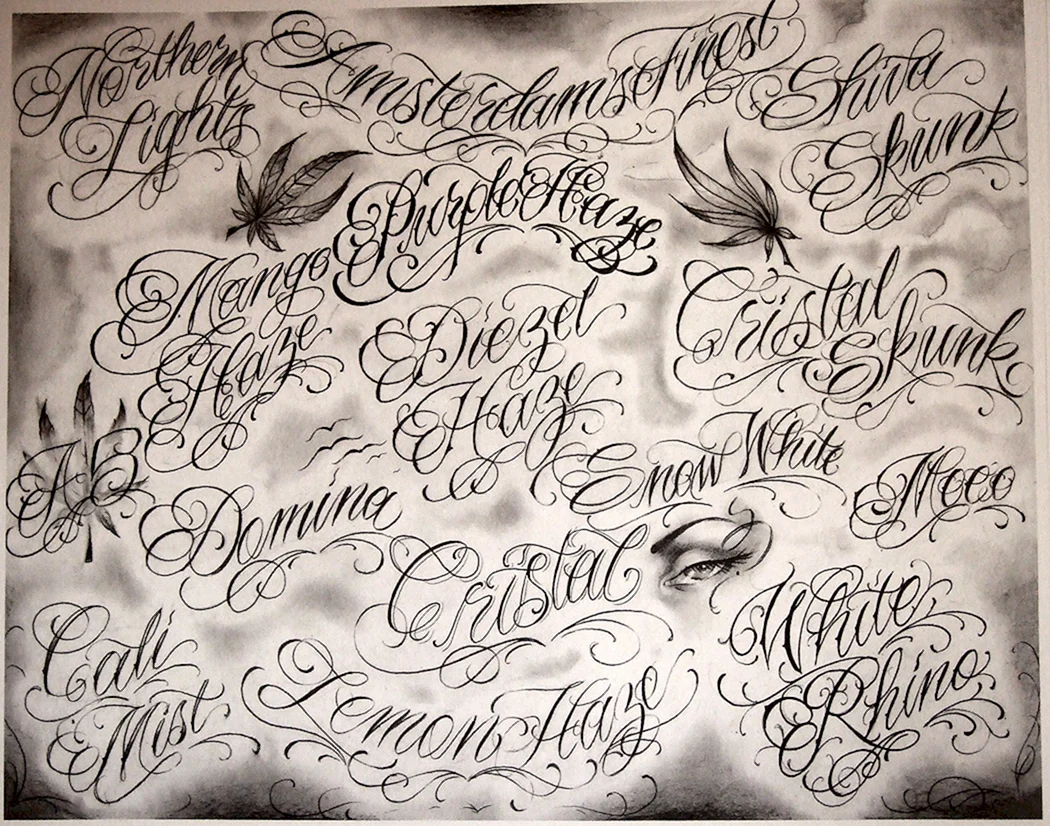 Northern
Lights
Amsterdam's Finest
Shiva
Skunk
Purple Haze
Mango
Haze
Diezel
Haze
Cristal
Skunk
AB
Domina
Snow White
Moco
Cristal
Cali
Mist
Lemon Haze
White
Rhino